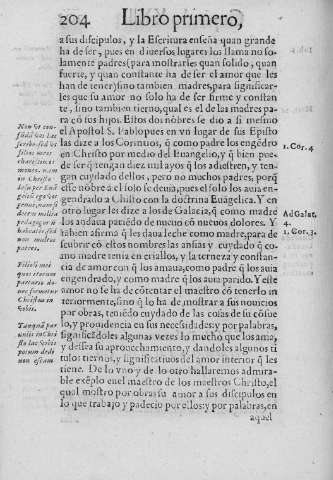 204 Libro primero,
a sus discipulos, y la Escritura enseña quan grande
ha de ser, pues en diuersos lugares los llama no so-
lamente padres (para mostrarles quan solido, quan
fuerte, y quan constante ha de ser el amor que les
han de tener) sino tambien madres, para significar-
les que su amor no solo ha de ser firme y constan
te, sino tambien tierno, qual es el de las madres pa
ra cõ sus hijos. Estos dos nõbres se dio a si mesmo
el Apostol S. Pablo pues en vn lugar de sus Episto
las dize a los Corintios, q̃ como padre los engẽdro
en Christo por medio del Euangelio, y q̃ bien pue-
de ser q̃ tengan diez mil ayos q̃ los adiestren, y ten-
gan cuydado dellos, pero no muchos padres, porq̃
este nõbre a el solo se deuia, pues el solo los auia en-
gendrado a Christo con la doctrina Euãgelica. Y en
otro lugar les dize a los de Galacia, q̃ como madre
los andaua pariẽdo de nueuo cõ nueuos dolores. Y
tãbien afirma q̃ les daua leche como madre, para de
scubrir cõ estos nombres las ansias y cuydado q̃ co-
mo madre tenia en criallos, y la terneza y constan-
cia de amor con q̃ los amaua, como padre q̃ los auia
engendrado, y como madre q̃ los auia parido. Y este
amor no se ha de cõtentar el maestro cõ tenerlo in
teriormente, sino q̃ lo ha de mostrar a sus nouicios
por obras, teniẽdo cuydado de las cosas de su cõsue
lo, y prouidencia en sus necesidades: y por palabras,
significãdoles algunas vezes lo mucho que los ama,
y dessea su aprouechamiento, y dandoles algunos ti
tulos tiernos, y significatiuos del amor interior q̃ les
tiene. De lo vno y de lo otro hallaremos admira-
ble exẽplo en el maestro de los maestros Christo, el
qual mostro por obras su amor a sus discipulos en
lo que trabajo y padecio por ellos: y por palabras, en
aquel
1. Cor. 4
Ad Galat.
4.
1. Cor. 3.
Filioli mei
quos iterum
parturio do-
nec formetur
Christus in
vobis.
Tanquã par
uulis in Chri
sto lac vobis
potum dedi
non escam.